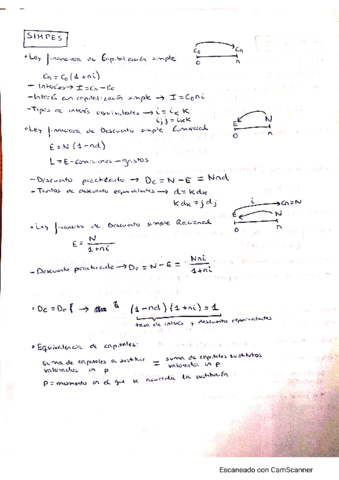 SIMPES
• Ley financiera de Capitalización simple
C₀ Cn
0 n
Cn = C₀ (1+ni)
– Intereses → I = Cn – C₀
– Interés con capitalización simple → I = C₀ni
– Tipos de interés equivalentes → i = iₖ K
• Ley financiera de Descuento simple Comercial
E N
0 n
E = N (1–nd)
L = E – comisiones – gastos
– Descuento practicado → Dc = N – E = Nnd
– Tantos de descuento equivalentes → d = K dₖ
K dₖ = j dⱼ
i Cn=N
E N
0 n
• Ley financiera de Descuento simple Racional
E = N / 1+ni
– Descuento practicado → Dr = N – E = Nni / 1+ni
• Dc = Dr → (1–nd) (1+ni) = 1
tasa de interés y descuento equivalentes
• Equivalencia de capitales:
suma de capitales a sustituir valorados en p = suma de capitales sustitutos valorados en p
p = momento en el que se acuerda la sustitución
Escaneado con CamScanner